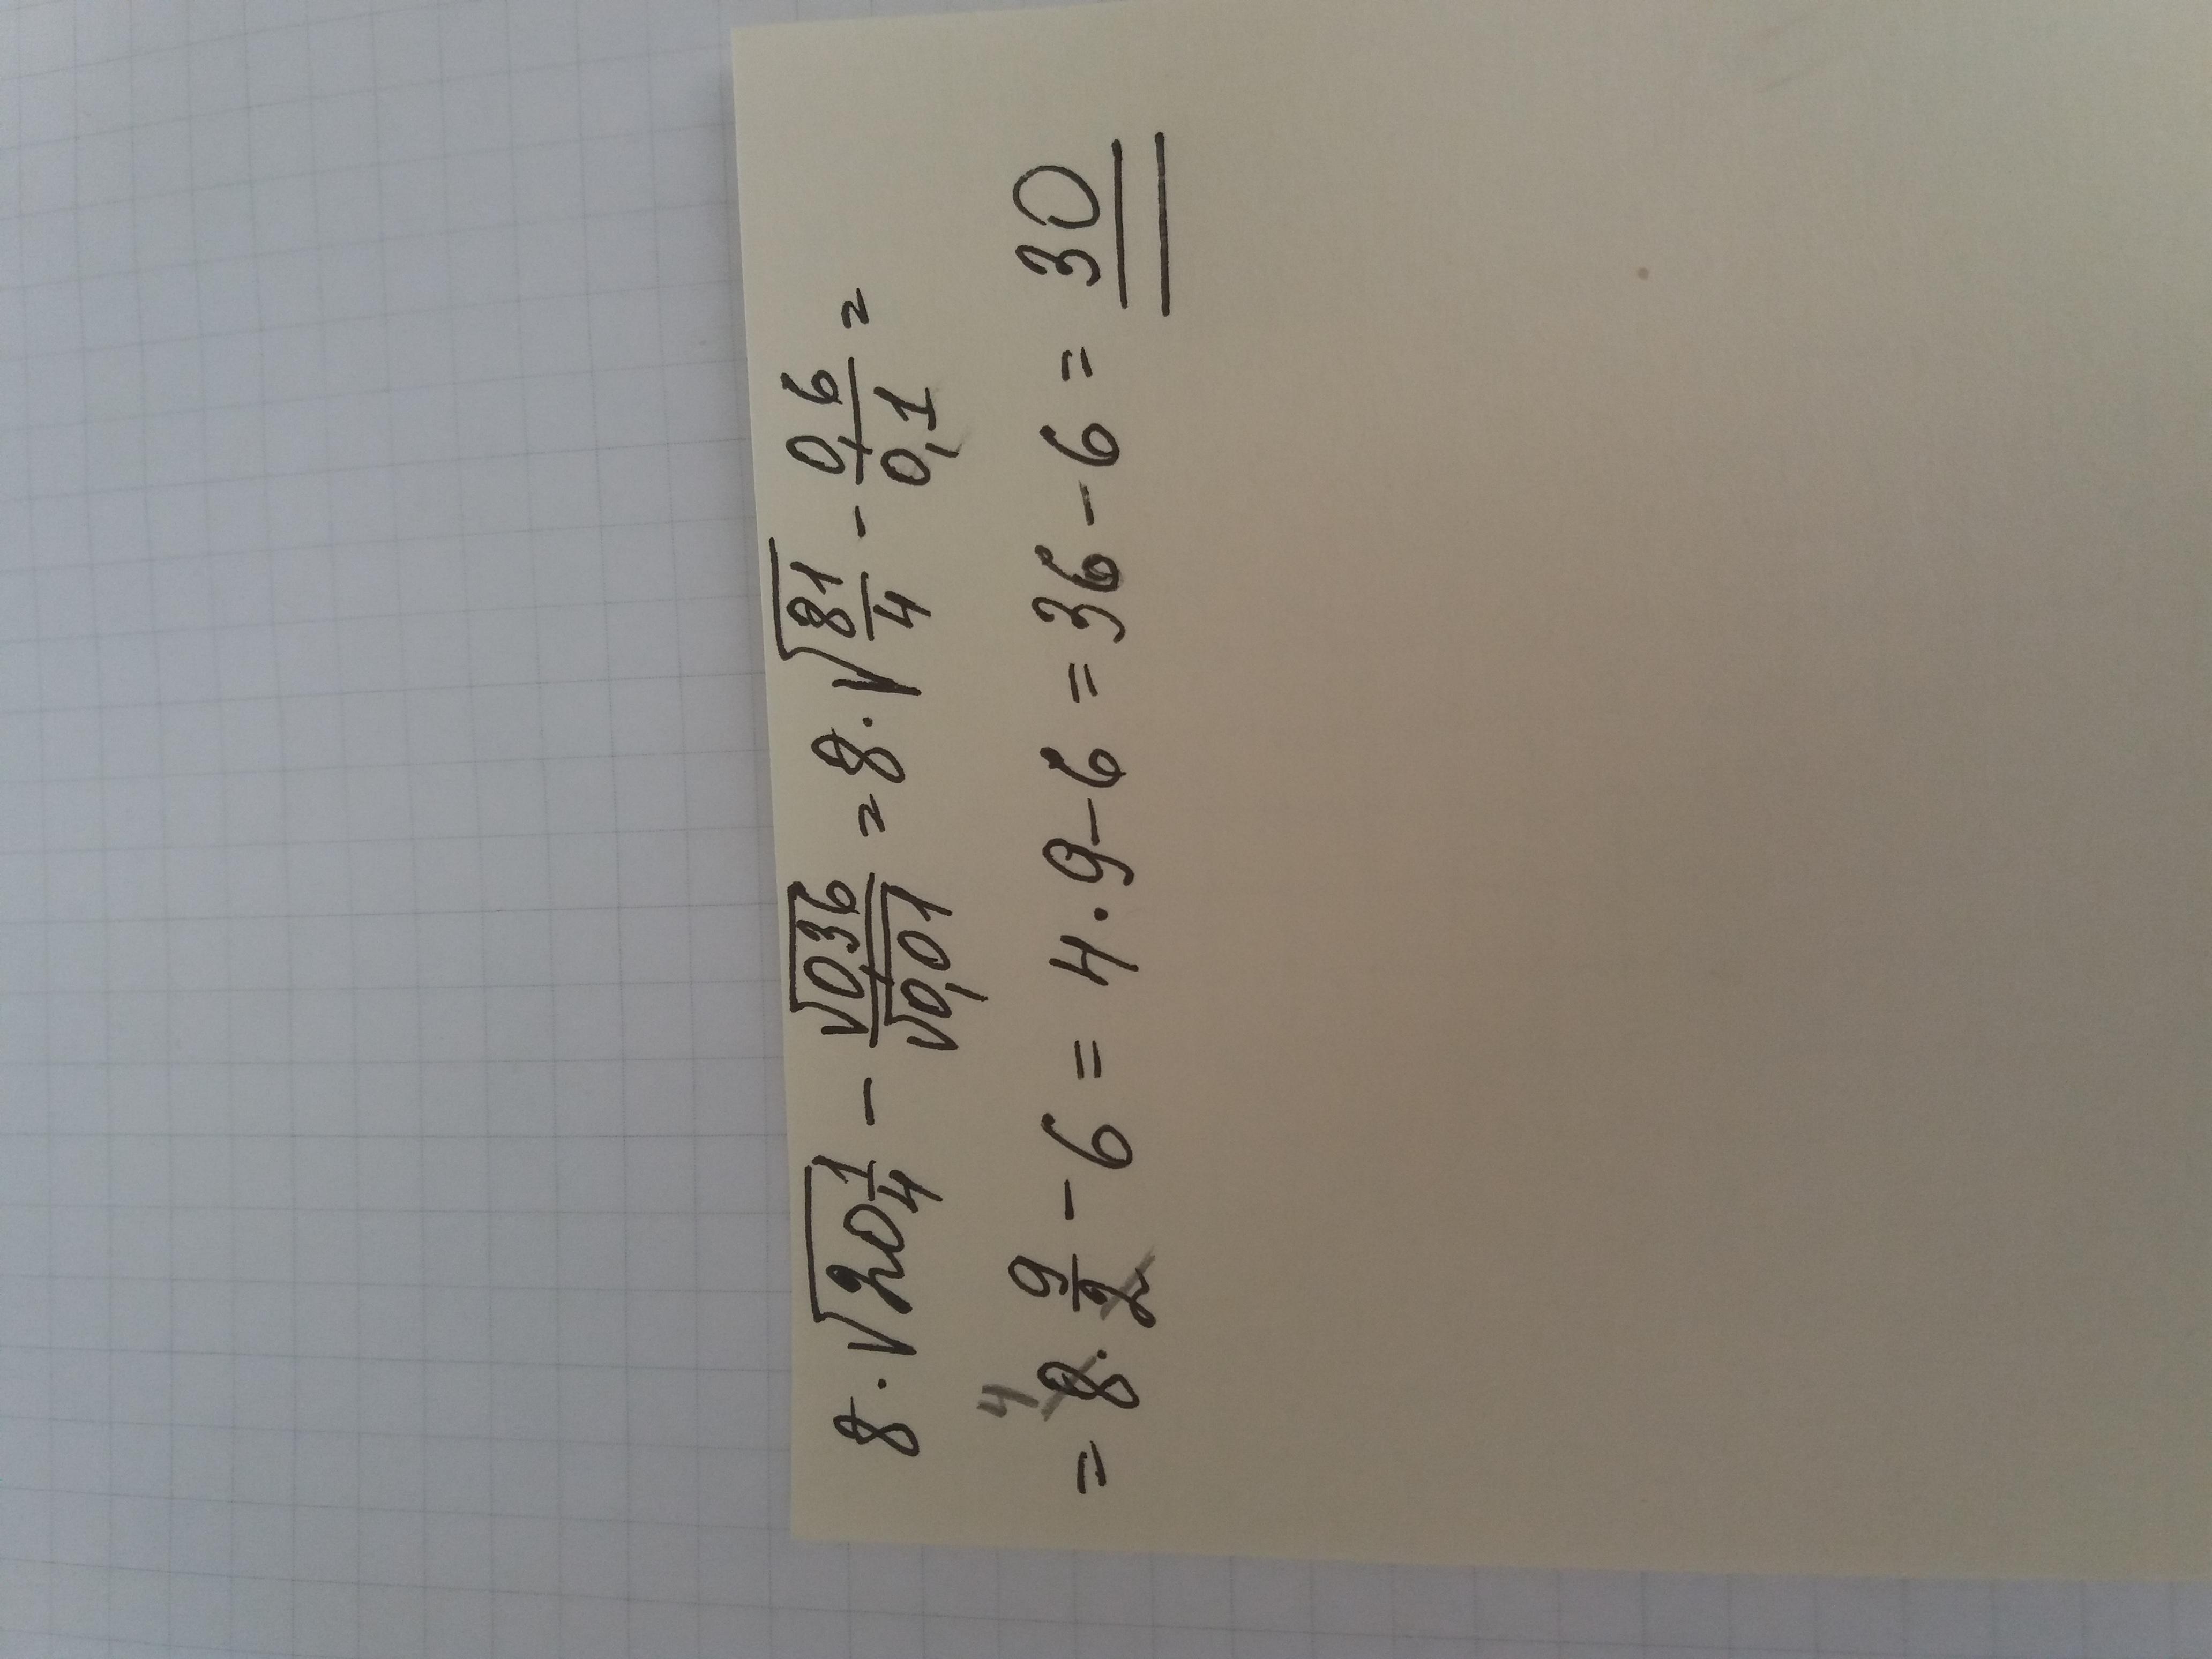 8·√20 1/4 − √0,36/√0,01 = 8·√81/4 − 0,6/0,1 =
= 8·9/2 − 6 = 4·9−6 = 36−6 = 30
4